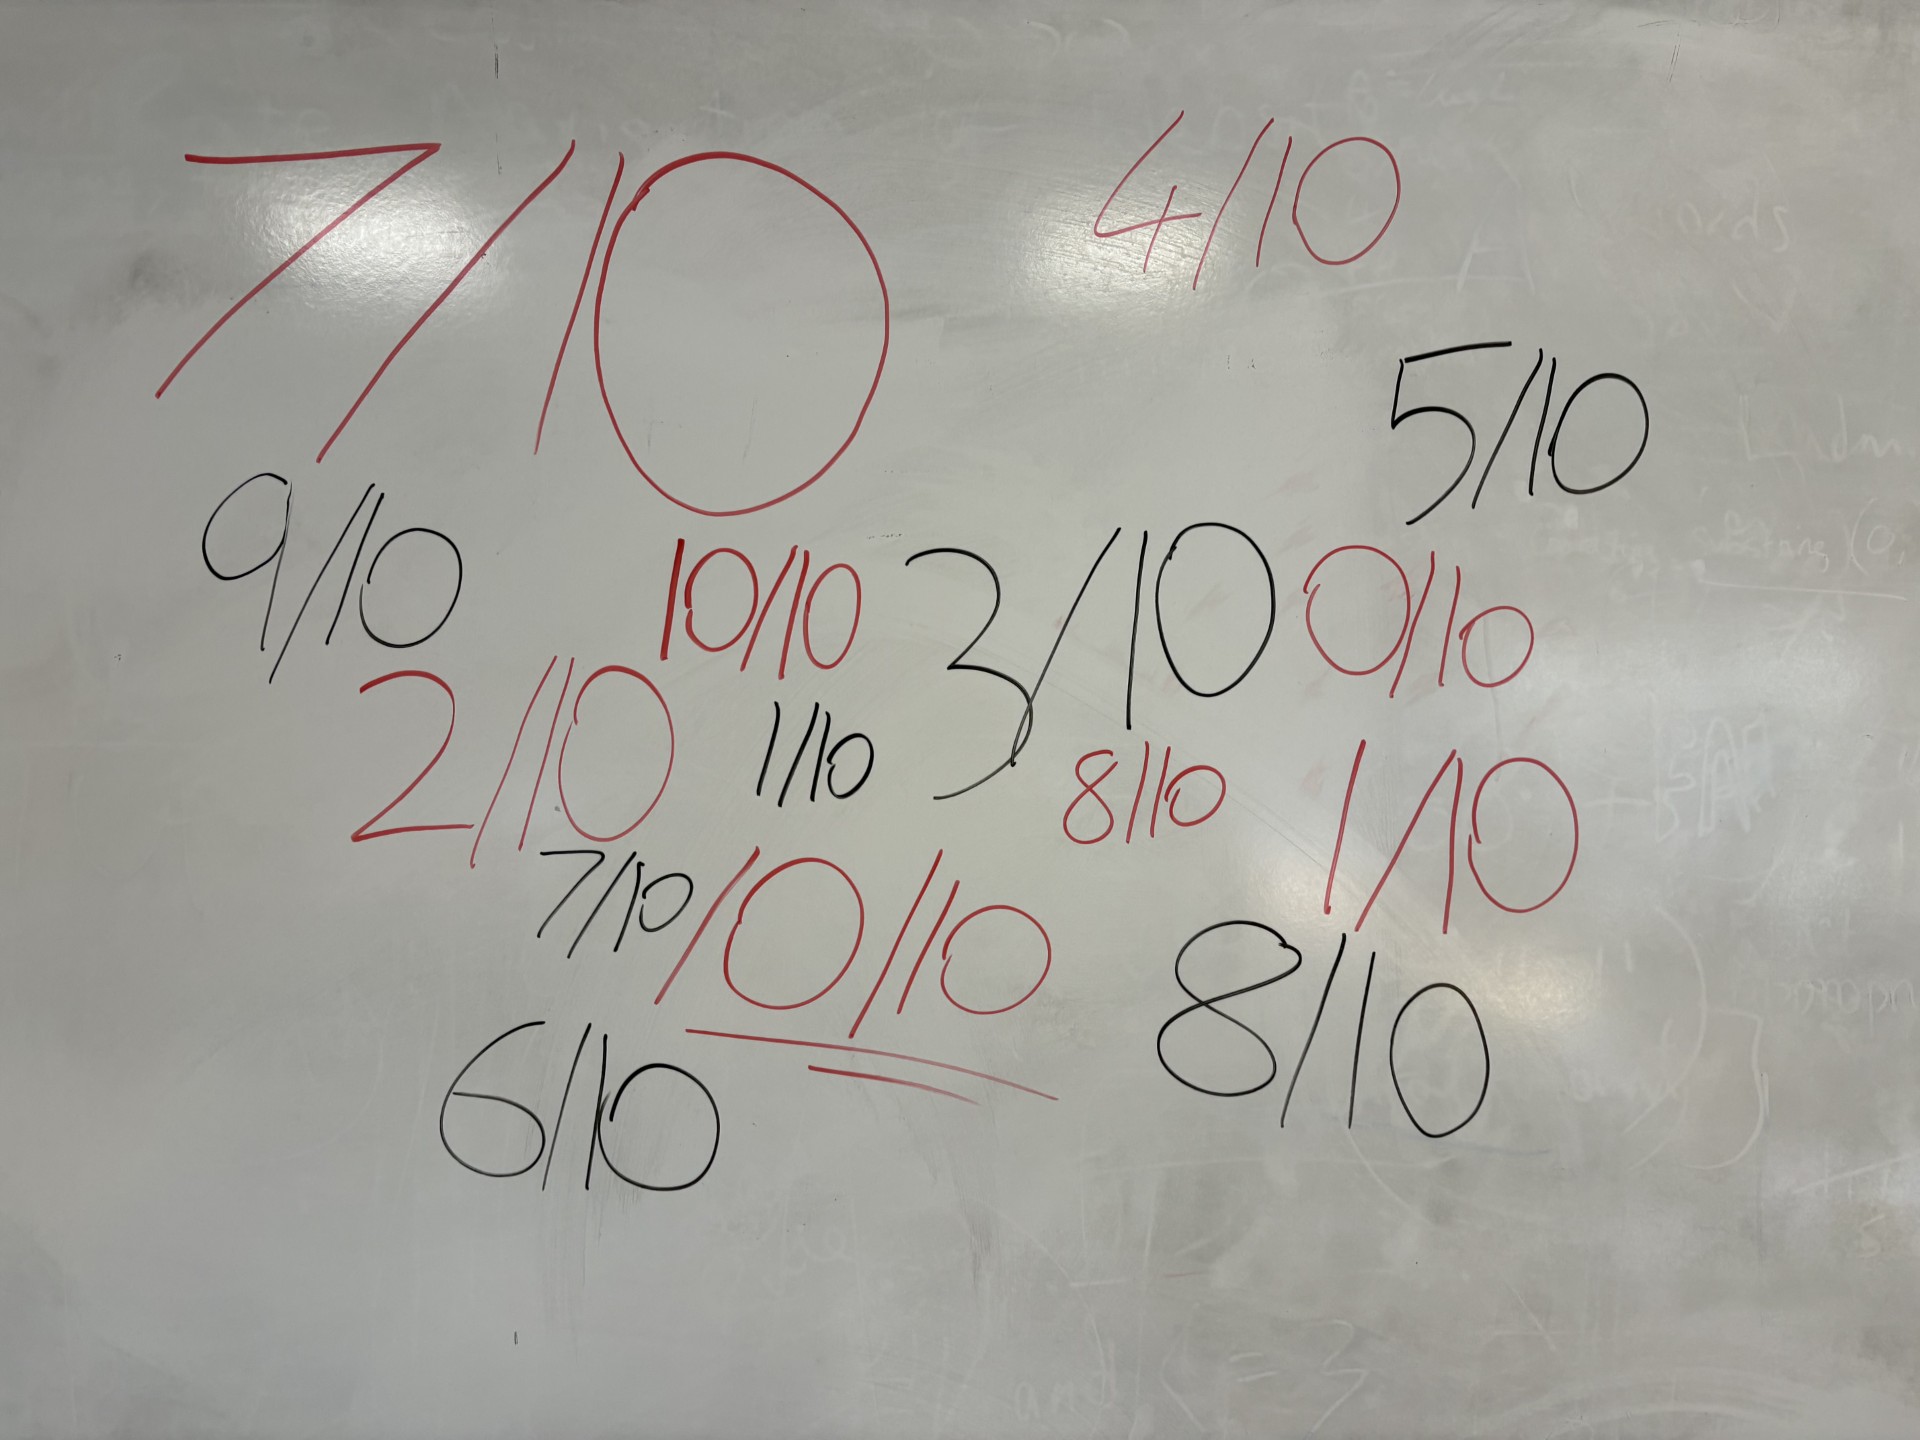 7/10
4/10
5/10
9/10
10/10
3/10
0/10
2/10
1/10
8/10
1/10
7/10
10/10
8/10
6/10